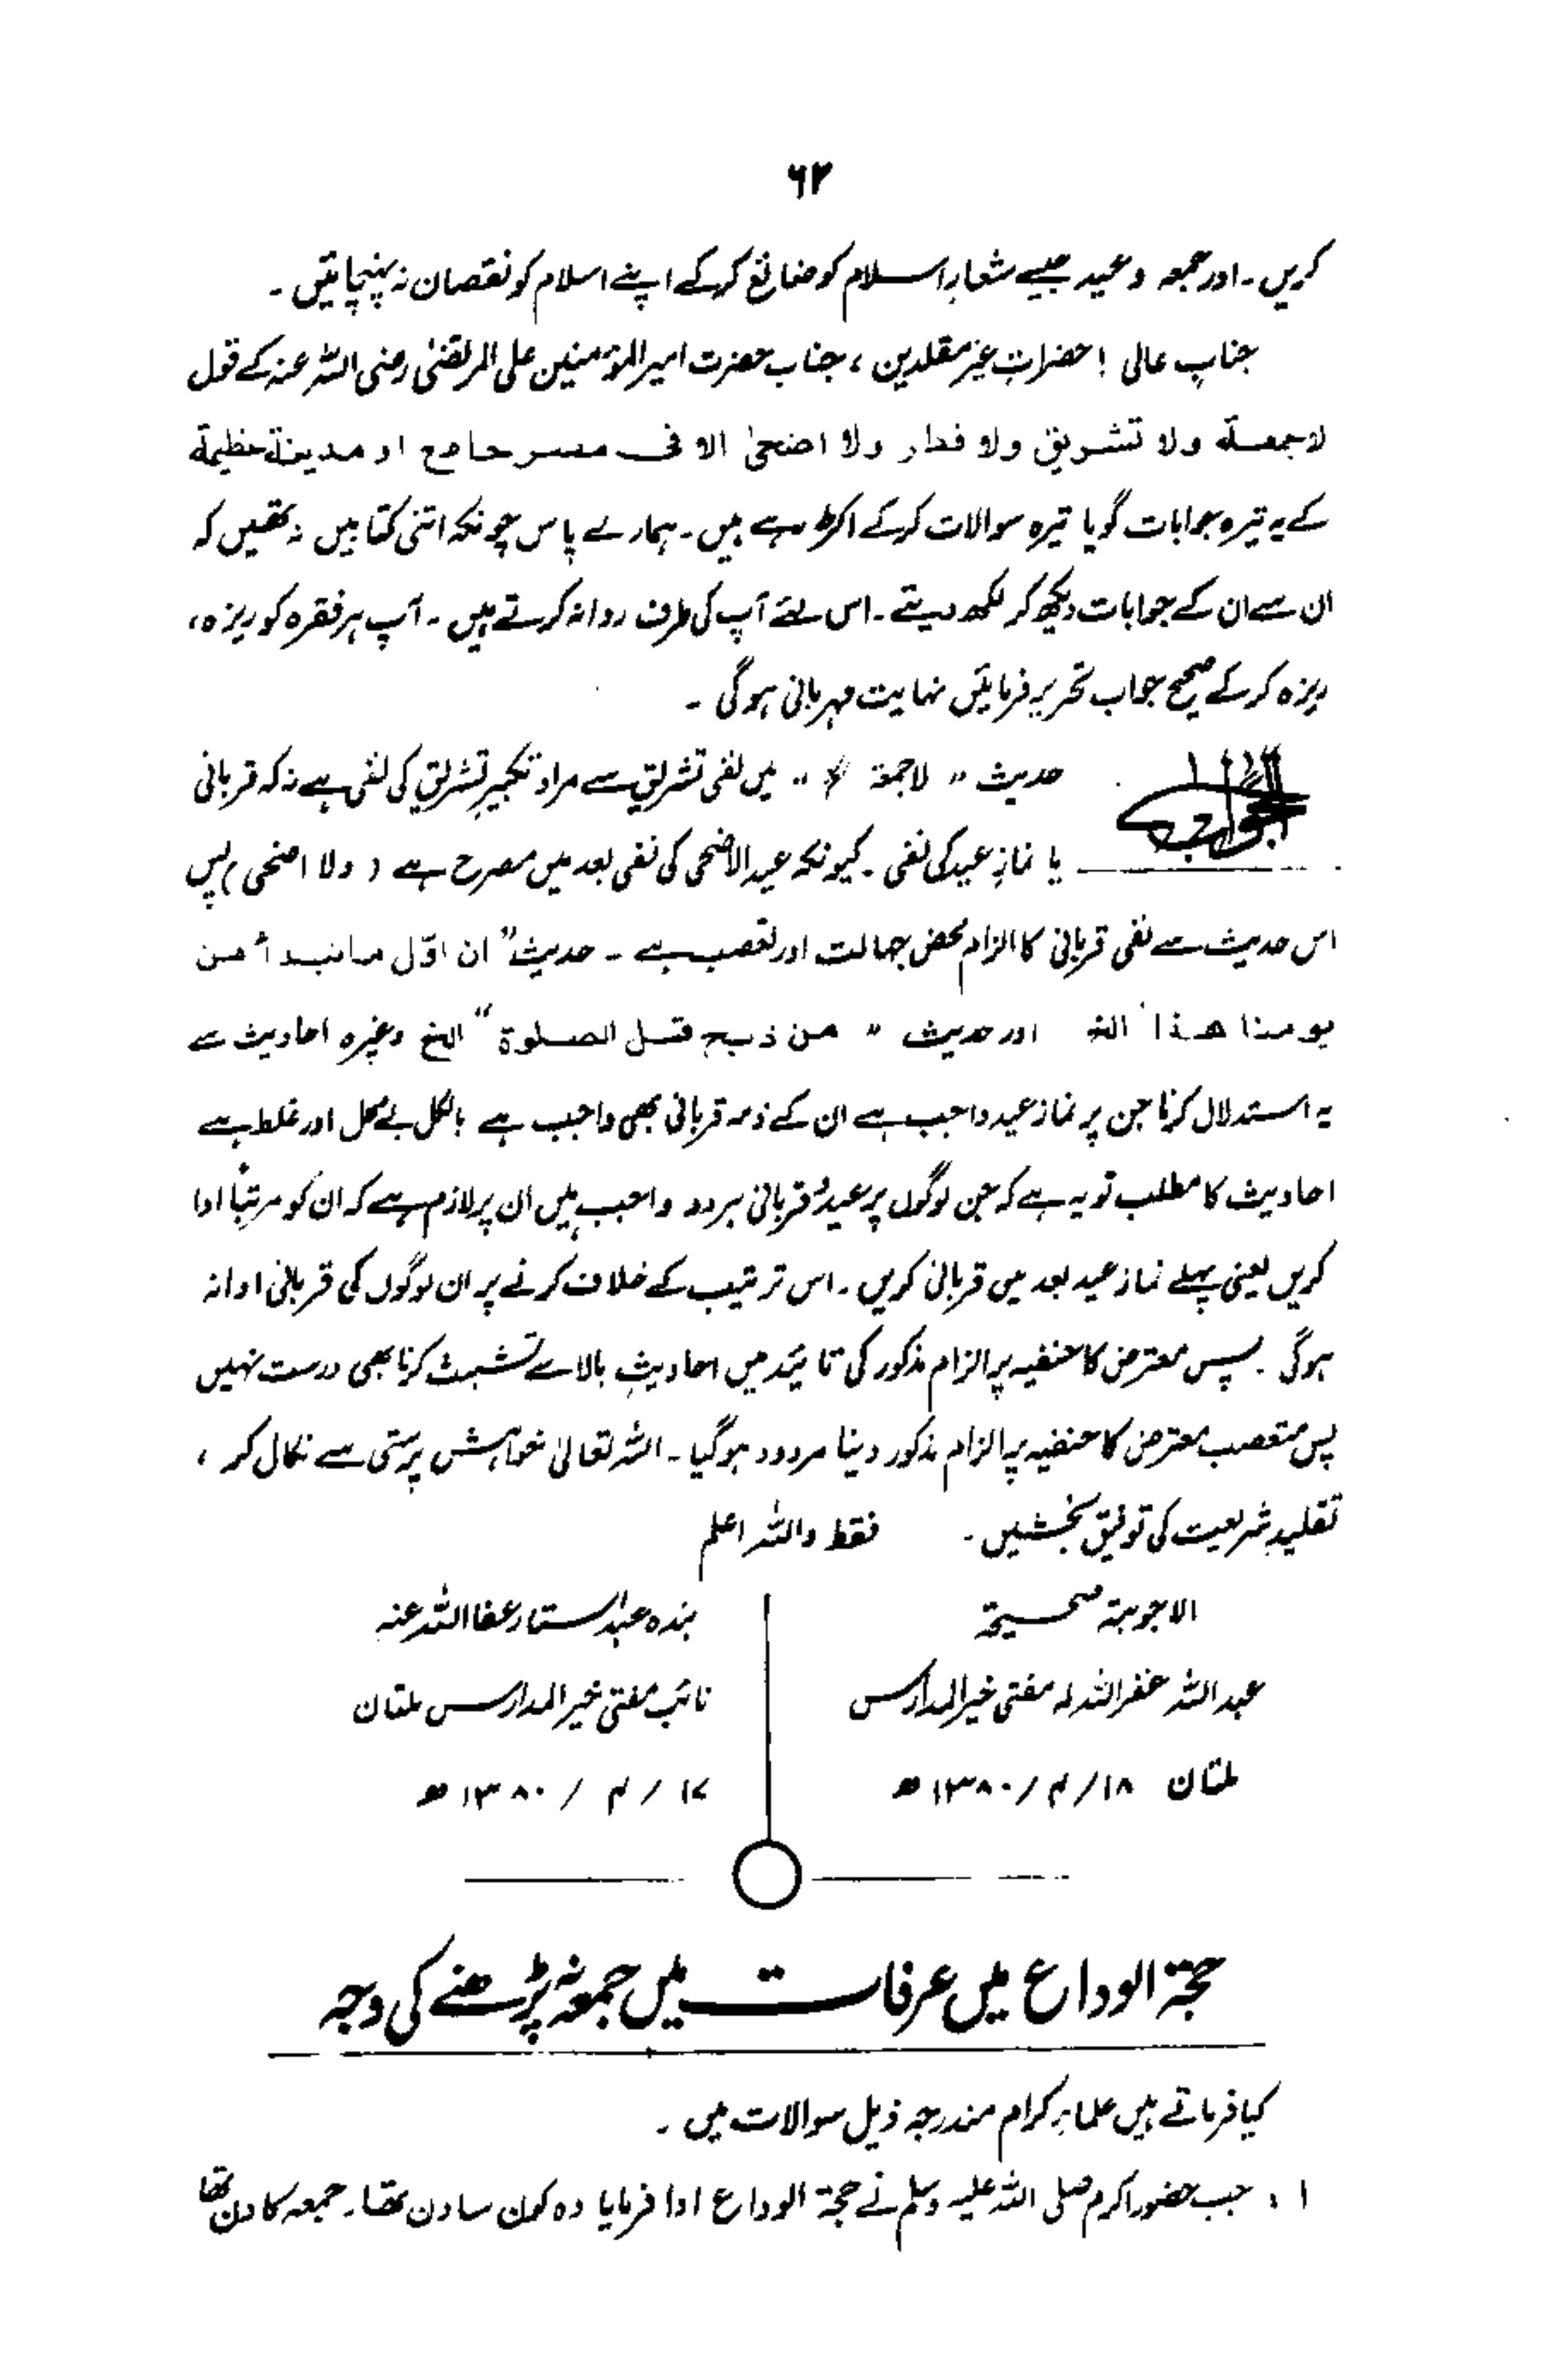 ۶۲
کریں۔ اور جمعہ و عید جیسے شعارِ اسلام کو ضائع کرکے اپنے اسلام کو نقصان نہ پہنچائیں۔
جناب عالی! حضراتِ غیر مقلدین، جناب حضرت امیر المؤمنین علی المرتضیٰ رضی اللہ عنہ کے قول
لا جمعة ولا تشریق ولا فطر ولا اضحیٰ الا فی مصر جامع او مدینة عظیمة
کے یہ تیرہ جوابات گویا تیرہ سوالات کرکے اکڑ رہے ہیں۔ ہمارے پاس چونکہ اتنی کتابیں نہ تھیں کہ
ان سے ان کے جوابات دیکھ کر لکھ دیتے۔ اس لئے آپ کی طرف روانہ کرتے ہیں۔ آپ ہر فقرہ کو ریزہ،
ریزہ کرکے صحیح جواب تحریر فرمائیں نہایت مہربانی ہوگی۔
الجواب حدیث "لا جمعة الخ" میں نفی تشریق سے مراد تکبیرِ تشریق کی نفی ہے نہ کہ قربانی
یا نمازِ عید کی نفی۔ کیونکہ عید الاضحی کی نفی بعد میں مصرح ہے (ولا اضحی) پس
اس حدیث سے نفی قربانی کا الزام محض جہالت اور تعصب ہے۔ حدیث "ان اوّل ما نبدأ من
یومنا ھذا" الخ اور حدیث "من ذبح قبل الصلوة" الخ وغیرہ احادیث سے
یہ استدلال کرنا جن پر نماز عید واجب ہے ان کے ذمہ قربانی بھی واجب ہے بالکل بے محل اور غلط ہے
احادیث کا مطلب تو یہ ہے کہ جن لوگوں پر عید و قربانی ہر دو واجب ہیں ان پر لازم ہے کہ ان کو مرتباً ادا
کریں یعنی پہلے نماز عید بعد میں قربانی کریں۔ اس ترتیب کے خلاف کرنے پر ان لوگوں کی قربانی ادا نہ
ہوگی۔ پس معترض کا حنفیہ پر الزام مذکور کی تائید میں احادیثِ بالا سے تشبث کرنا بھی درست نہیں
پس متعصب معترض کا حنفیہ پر الزام مذکور دینا مردود ہوگیا۔ اللہ تعالیٰ خواہش پرستی سے نکال کر،
تقلیدِ شریعت کی توفیق بخشیں۔ فقط واللہ اعلم
الاجوبة صحیحة
عبد اللہ غفر اللہ لہ مفتی خیر المدارس
ملتان ۱۸/۴/۱۳۸۰ھ
بندہ عبد الستار عفا اللہ عنہ
نائب مفتی خیر المدارس ملتان
۱۷/۴/۱۳۸۰ھ
حجۃ الوداع میں عرفات میں جمعہ نہ پڑھنے کی وجہ
کیا فرماتے ہیں علماء کرام مندرجہ ذیل سوالات میں۔
۱: جب حضور اکرم صلی اللہ علیہ وسلم نے حجۃ الوداع ادا فرمایا وہ کون سا دن تھا۔ جمعہ کا دن تھا